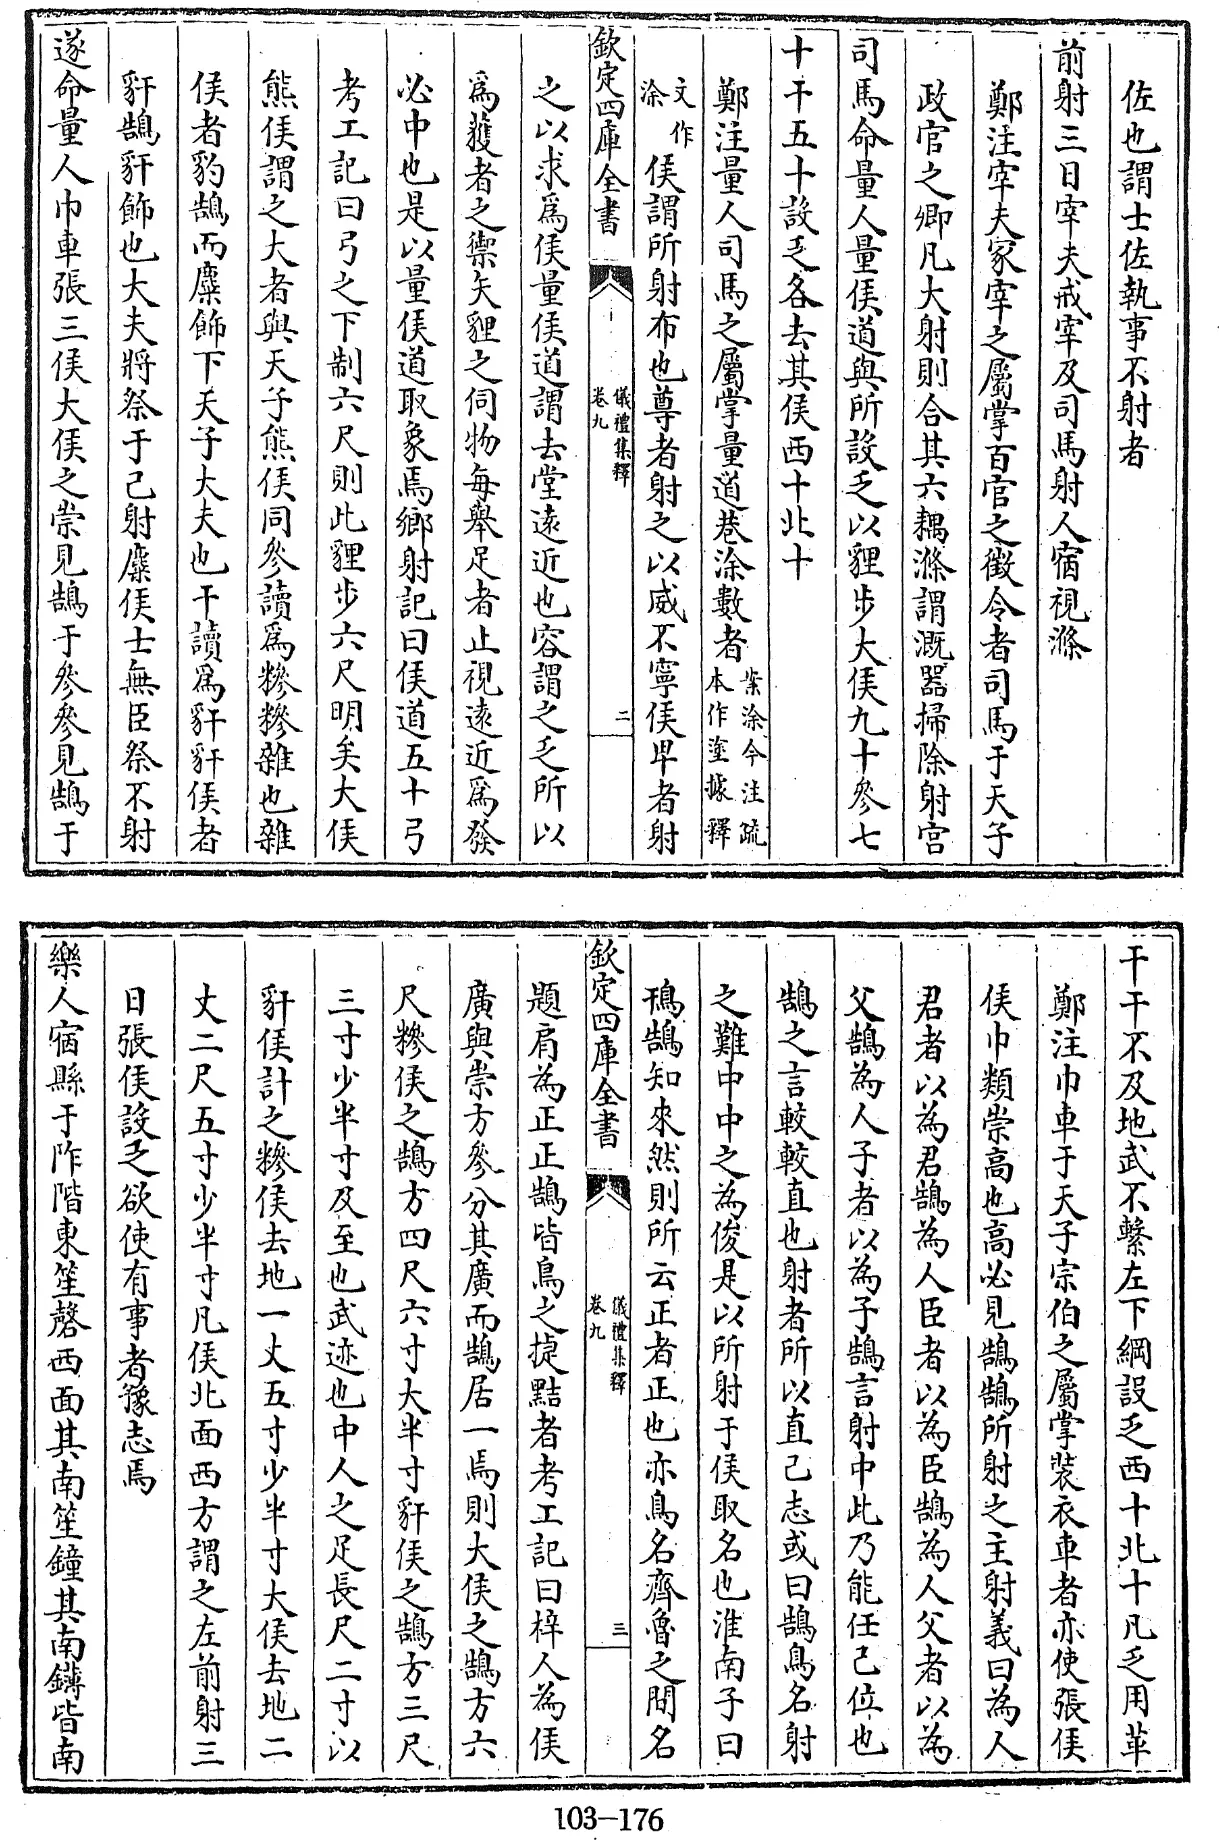 佐也謂士佐執事不射者
前射三日宰夫戒宰及司馬射人宿視滌
鄭注宰夫冢宰之屬掌百官之徵令者司馬于天子
政官之卿凡大射則合其六耦滌謂溉器掃除射宮
司馬命量人量侯道與所設乏以貍步大侯九十參七
十干五十設乏各去其侯西十北十
鄭注量人司馬之屬掌量道巷涂數者案涂今注疏本作塗據釋
文作涂侯謂所射布也尊者射之以威不寧侯卑者射
欽定四庫全書 儀禮集釋卷九 二
之以求為侯量侯道謂去堂遠近也容謂之乏所以
為獲者之禦矢貍之伺物每舉足者止視遠近為發
必中也是以量侯道取象焉鄉射記曰侯道五十弓
考工記曰弓之下制六尺則此貍步六尺明矣大侯
熊侯謂之大者與天子熊侯同參讀為糝糝雜也雜
侯者豹鵠而麋飾下天子大夫也干讀為豻豻侯者
豻鵠豻飾也大夫將祭于己射麋侯士無臣祭不射
遂命量人巾車張三侯大侯之崇見鵠于參參見鵠于
干干不及地武不繫左下綱設乏西十北十凡乏用革
鄭注巾車于天子宗伯之屬掌裝衣車者亦使張侯
侯巾類崇高也高必見鵠鵠所射之主射義曰為人
君者以為君鵠為人臣者以為臣鵠為人父者以為
父鵠為人子者以為子鵠言射中此乃能任己位也
鵠之言較較直也射者所以直己志或曰鵠鳥名射
之難中中之為俊是以所射于侯取名也淮南子曰
鳱鵠知來然則所云正者正也亦鳥名齊魯之間名
欽定四庫全書 儀禮集釋卷九 三
題肩為正正鵠皆鳥之捷黠者考工記曰梓人為侯
廣與崇方參分其廣而鵠居一焉則大侯之鵠方六
尺糝侯之鵠方四尺六寸大半寸豻侯之鵠方三尺
三寸少半寸及至也武迹也中人之足長尺二寸以
豻侯計之糝侯去地一丈五寸少半寸大侯去地二
丈二尺五寸少半寸凡侯北面西方謂之左前射三
日張侯設乏欲使有事者豫志焉
樂人宿縣于阼階東笙磬西面其南笙鐘其南鑮皆南
103—176